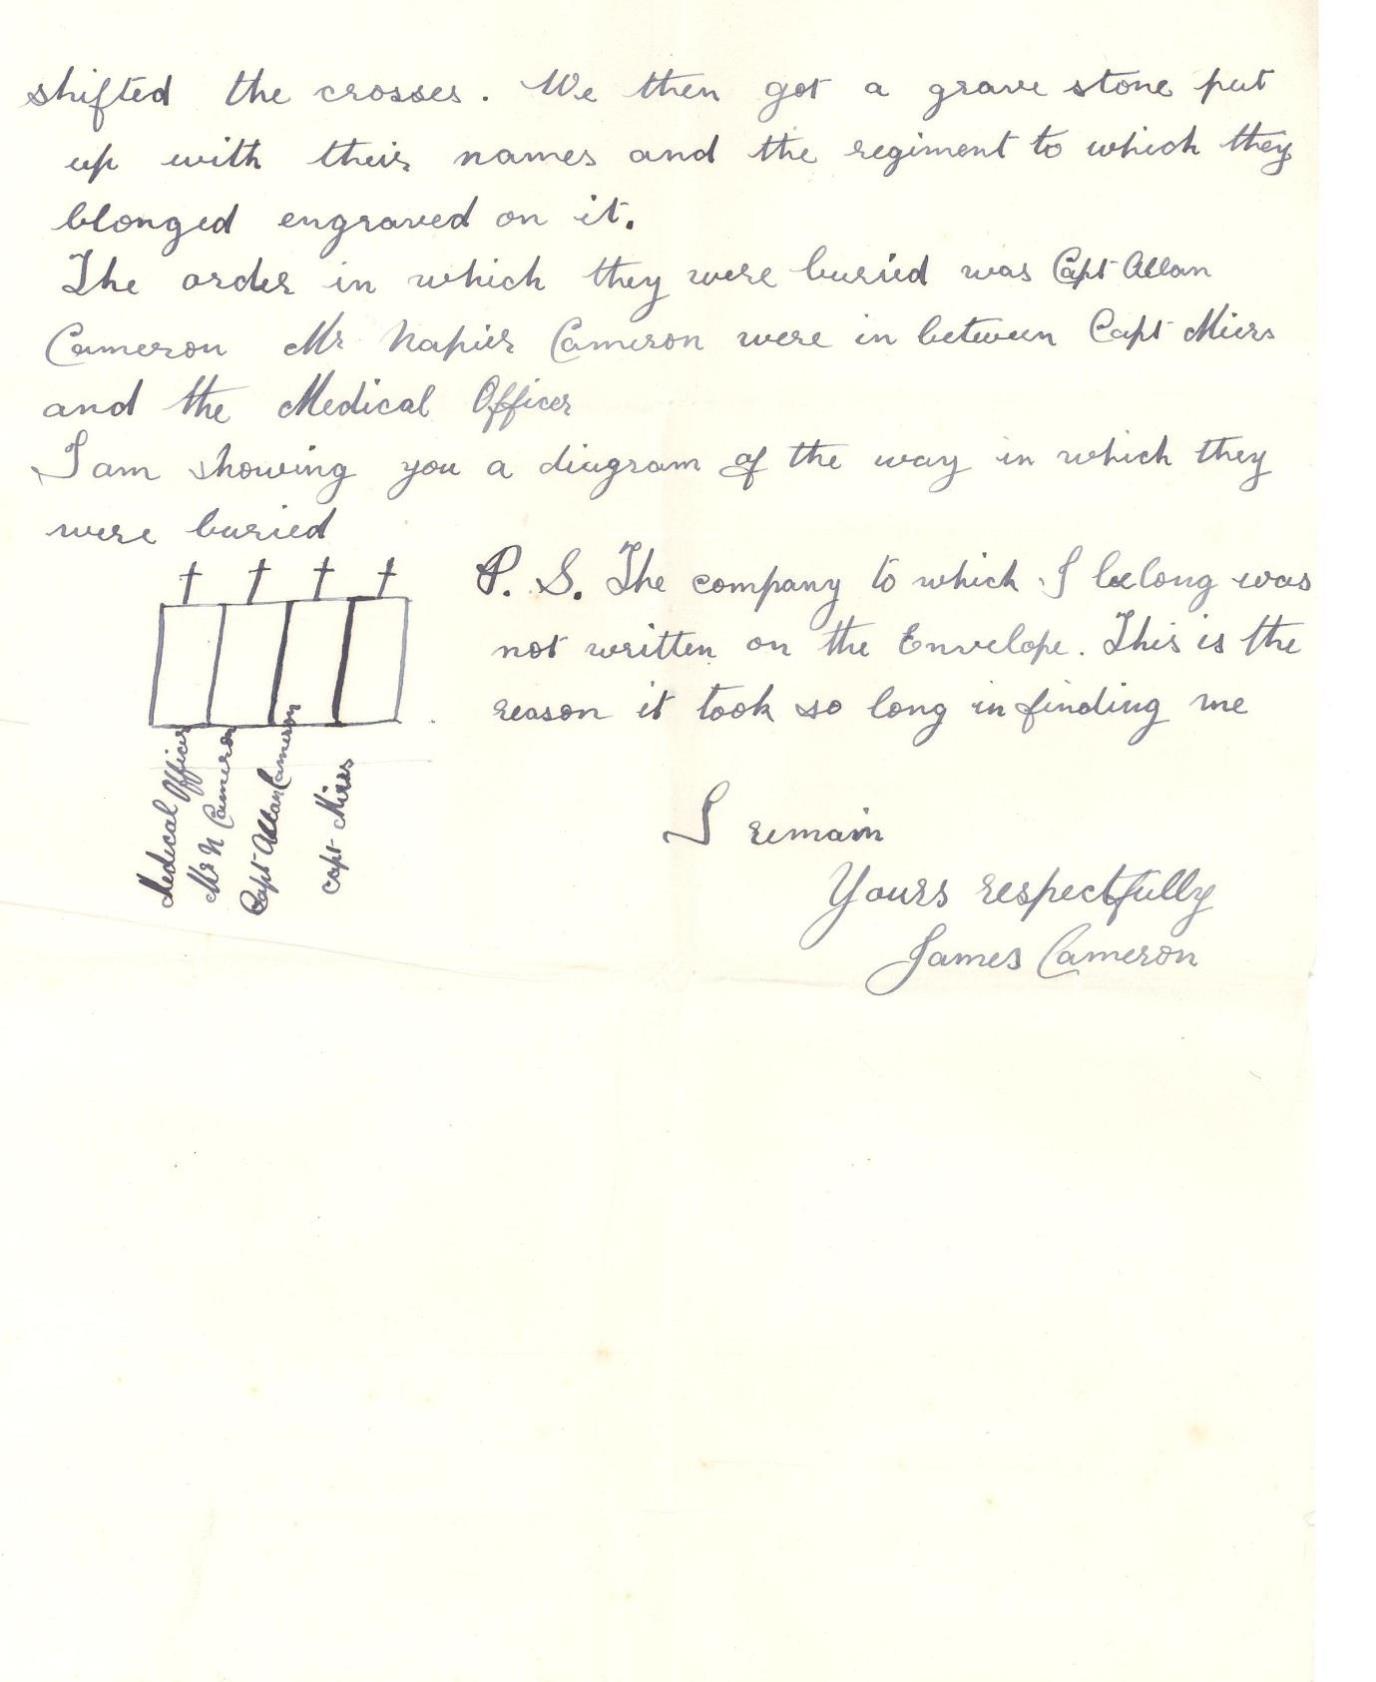 shifted the crosses. We then got a grave stone put
up with their names and the regiment to which they
blonged engraved on it.
The order in which they were buried was Capt Allan
Cameron Mr Napier Cameron were in between Capt Miers
and the Medical Officer
I am showing you a diagram of the way in which they
were buried
Medical Officer
Mr N Cameron
Capt Allan Cameron
Capt Miers
P. S. The company to which I belong was
not written on the Envelope. This is the
reason it took so long in finding me
I remain
Yours respectfully
James Cameron